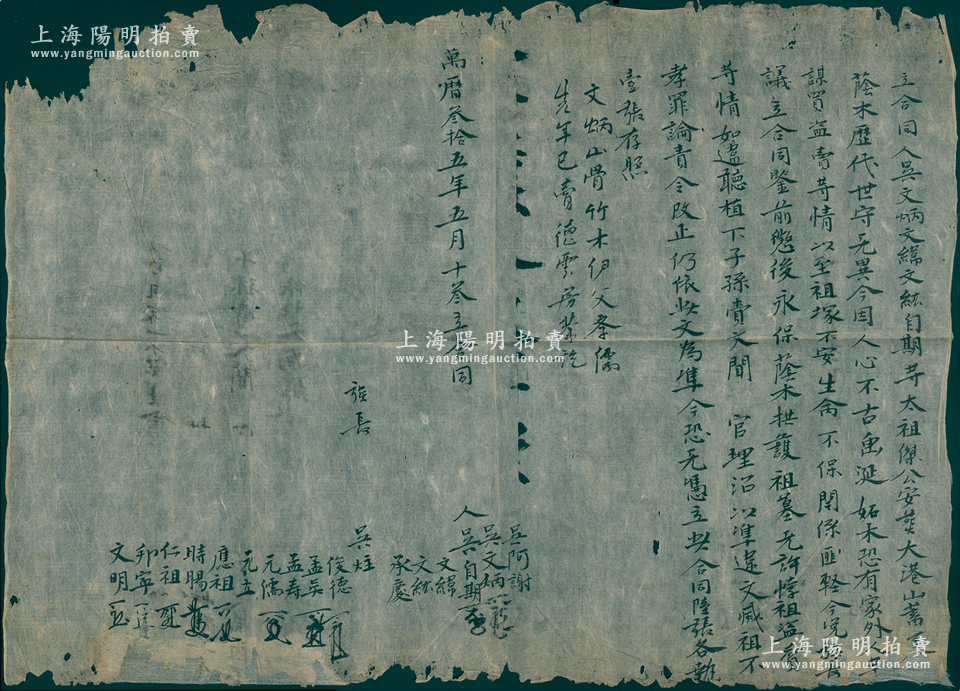 立合同人吳文炳文綿文紘自期等太祖傑公安葬大港山蓄
蔭木歷代世守无異今因人心不古垂涎妬木恐有家外人
謀買盜賣等情以至祖塚不安生命不保関係匪軽今
議立合同鑒前懲後永保蔭木拱護祖墓无許悖祖盜賣
等情如違聽植下子孫賫文聞 官理治以準違文滅祖不
孝罪論責令改正仍依此文為準今恐无憑立此合同陸張各執
壹張存照
文炳山骨竹木伊父孝儒
先年已賣德雲芳
萬曆叁拾五年五月十叁立合同
人吳阿謝
吳文炳
吳自期
文綿
文紘
承慶
族長
吳炷
俊德
孟
孟寿
元儒
元立
應祖
時賜
仁祖
卯寧
文明
上海陽明拍賣
www.yangmingauction.com
上海陽明拍賣
www.yangmingauction.com
上海陽明拍賣
www.yangmingauction.com
上海陽明拍賣
www.yangmingauction.com